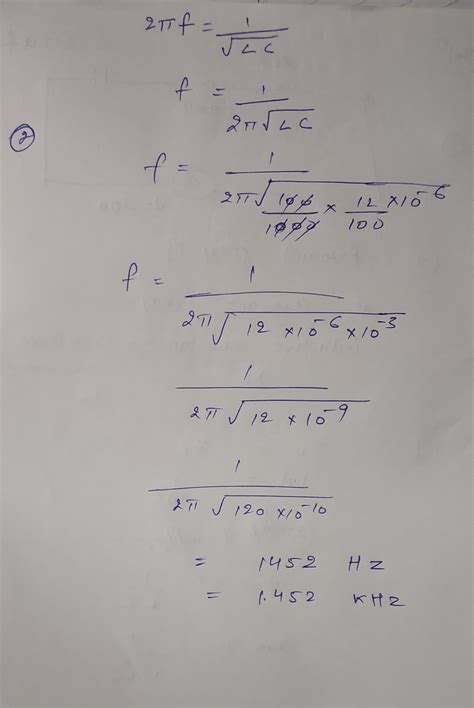 2πf = 1/√LC
f = 1/2π√LC
②
f = 1/2π√(100/1000 × 12/100 × 10⁻⁶)
f = 1/2π√(12 × 10⁻⁶ × 10⁻³)
1/2π√(12 × 10⁻⁹)
1/2π√(120 × 10⁻¹⁰)
= 1452 Hz
= 1.452 KHz